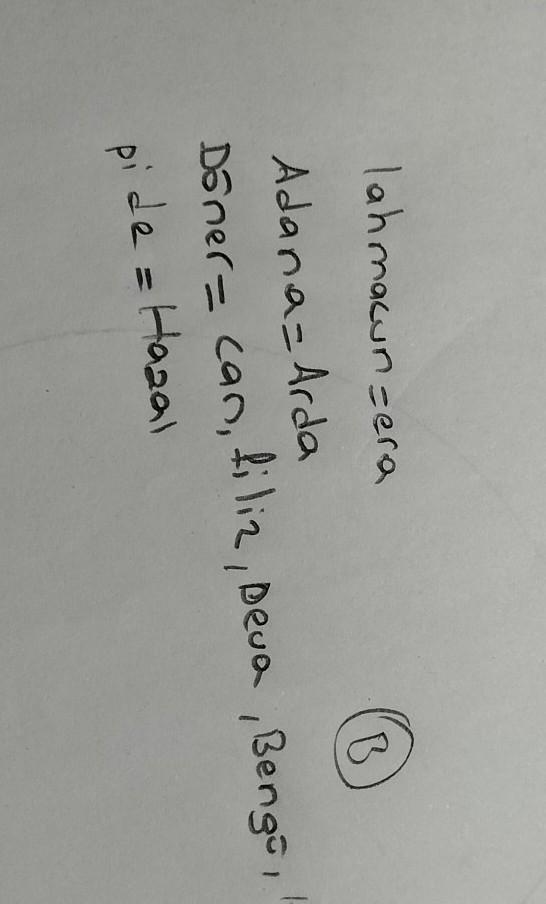 lahmacun = era
B
Adana = Arda
Döner = Can, filiz, Deva, Bengü,
pide = Hazal